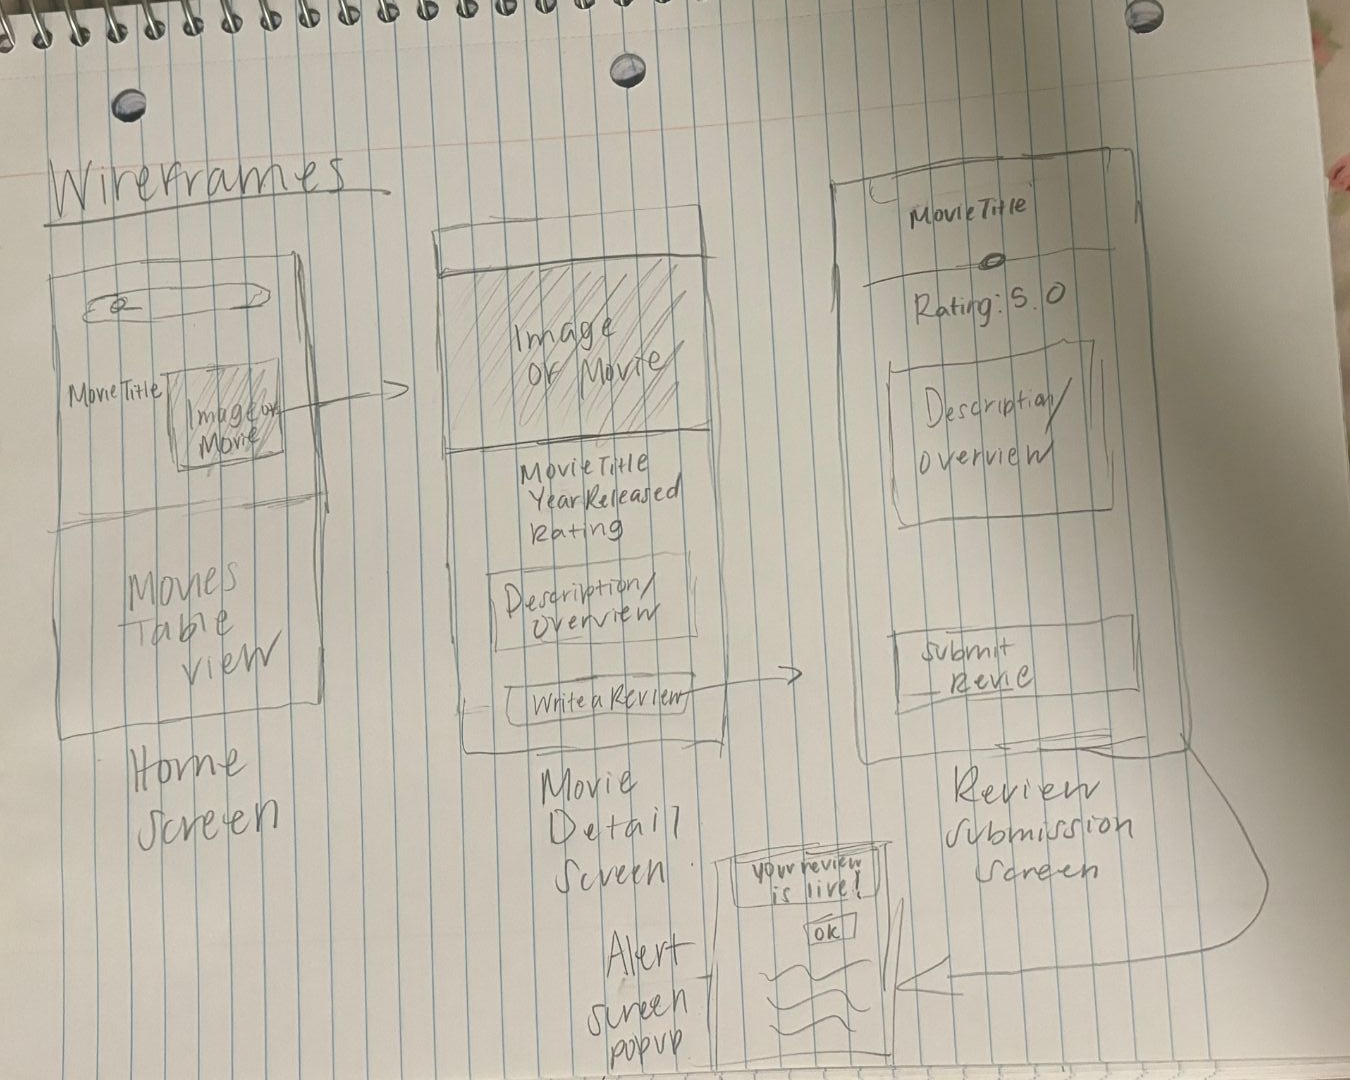 Wireframes
Movie Title
Image or
Movie
Movies
Table
view
Home
Screen
Image
or Movie
Movie Title
Year Released
Rating
Description/
overview
Write a Review
Movie
Detail
Screen
Movie Title
Rating: 5.0
Description/
overview
Submit
Revie
Review
Submission
Screen
your review
is live!
OK
Alert
screen
popup